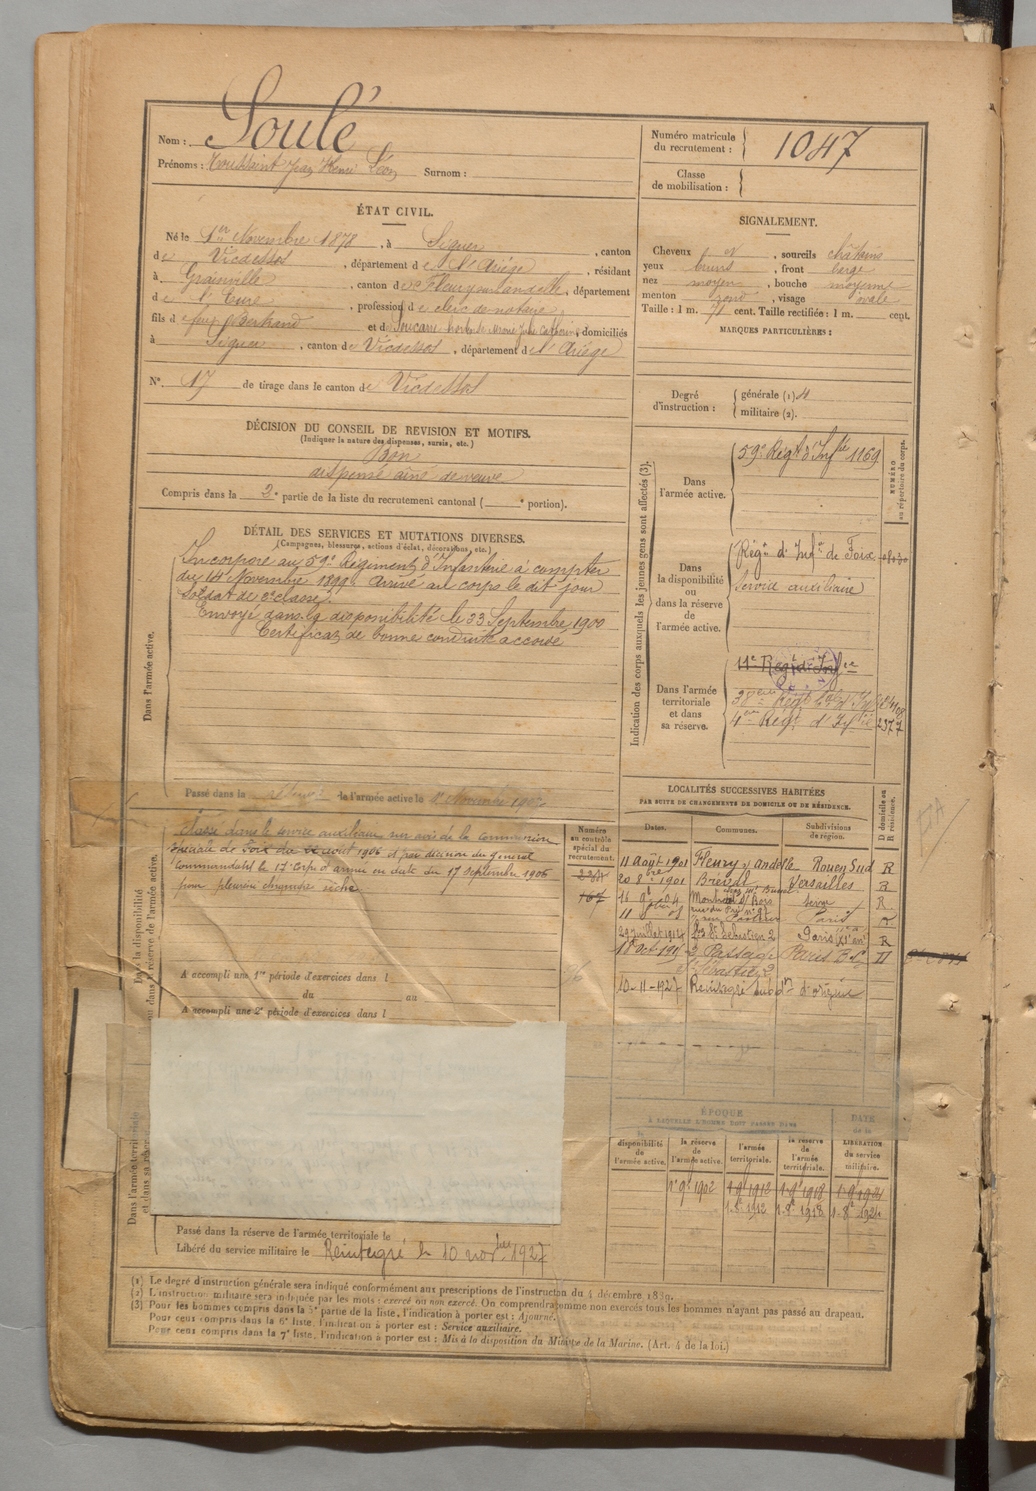 Nom : Soulé
Prénoms : Toussaint Jean Henri Léon Surnom :
Numéro matricule du recrutement : 1047
Classe de mobilisation :
ÉTAT CIVIL.
Né le 1er Novembre 1878, à Siguer, canton
de Vicdessos, département de l'Ariége, résidant
à Grainville, canton de Fleury sur Andelle, département
de l'Eure, profession de clerc de notaire
fils de feu Bertrand et de Soucarre, domiciliés
à Siguer, canton de Vicdessos, département de l'Ariége
N° 17 de tirage dans le canton de Vicdessos
SIGNALEMENT.
Cheveux et, sourcils châtains
yeux bruns, front large
nez moyen, bouche moyenne
menton rond, visage ovale
Taille : 1 m. 71 cent. Taille rectifiée : 1 m. cent.
MARQUES PARTICULIÈRES :
Degré d'instruction : générale (1)
militaire (2).
DÉCISION DU CONSEIL DE REVISION ET MOTIFS.
(Indiquer la nature des dispenses, sursis, etc.)
Bon
dispensé aîné de veuve
Compris dans la 2e partie de la liste du recrutement cantonal ( e portion).
DÉTAIL DES SERVICES ET MUTATIONS DIVERSES.
(Campagnes, blessures, actions d'éclat, décorations, etc.)
Dans l'armée active.
Incorporé au 59e Régiment d'Infanterie à compter
du 14 Novembre 1899 arrivé au corps le dit jour
Soldat de 2e classe.
Envoyé dans la disponibilité le 23 Septembre 1900
Certificat de bonne conduite accordé
Passé dans la réserve de l'armée active le 1er Novembre 1902
Indication des corps auxquels les jeunes gens sont affectés (3).
NUMÉRO au répertoire du corps.
Dans l'armée active.
59e Régt d'Infie 1159
Dans la disponibilité ou dans la réserve de l'armée active.
Régt d'Infie de Foix
Service auxiliaire
Dans l'armée territoriale et dans sa réserve.
4e Régt d'Infie 2377
Dans la disponibilité ou dans la réserve de l'armée active.
Classé dans le service auxiliaire sur avis de la commission
spéciale de Foix du 22 août 1906 et par décision du général
Commandant le 17e Corps d'armée en date du 17 septembre 1906
pour pleurésie chronique sèche
Numéro au contrôle spécial du recrutement.
A accompli une 1re période d'exercices dans l
du au
A accompli une 2e période d'exercices dans l
LOCALITÉS SUCCESSIVES HABITÉES
PAR SUITE DE CHANGEMENTS DE DOMICILE OU DE RÉSIDENCE.
Dates. Communes. Subdivisions de région. D domicile ou R résidence.
11 Août 1901 Fleury s/ Andelle Rouen Sud R
20 8bre 1901 Versailles R
R
rue Pasteur Paris R
29 juillet 1914 St Sébastien 2 Paris R
2 Passage
10-11-1927 Réintégré subdon d'origine
ÉPOQUE
A LAQUELLE L'HOMME DOIT PASSER DANS
la disponibilité de l'armée active. la réserve de l'armée active. l'armée territoriale. la réserve de l'armée territoriale.
DATE de la LIBÉRATION du service militaire.
1er 9bre 1902 1-9-1912 1-9-1918 1-9-1924
1-8bre 1912 1-8bre 1918 1-8bre 1924
Dans l'armée territoriale et dans sa réserve.
Passé dans la réserve de l'armée territoriale le
Libéré du service militaire le Réintégré le 10 novbre 1927
(1) Le degré d'instruction générale sera indiqué conformément aux prescriptions de l'instruction du 4 décembre 1889.
(2) L'instruction militaire sera indiquée par les mots : exercé ou non exercé. On comprendra comme non exercés tous les hommes n'ayant pas passé au drapeau.
(3) Pour les hommes compris dans la 5e partie de la liste, l'indication à porter est : Ajourné.
Pour ceux compris dans la 6e liste, l'indication à porter est : Service auxiliaire.
Pour ceux compris dans la 7e liste, l'indication à porter est : Mis à la disposition du Ministre de la Marine. (Art. 4 de la loi.)